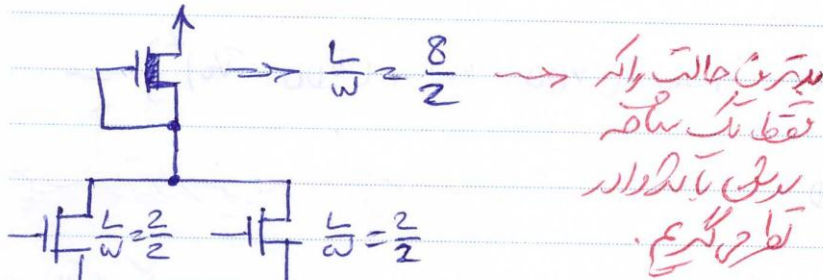 L/W = 8/2
بدترین حالت را که
فقط یک شاخه
روشن باشد را در
نظر می‌گیریم.
L/W = 2/2
L/W = 2/2